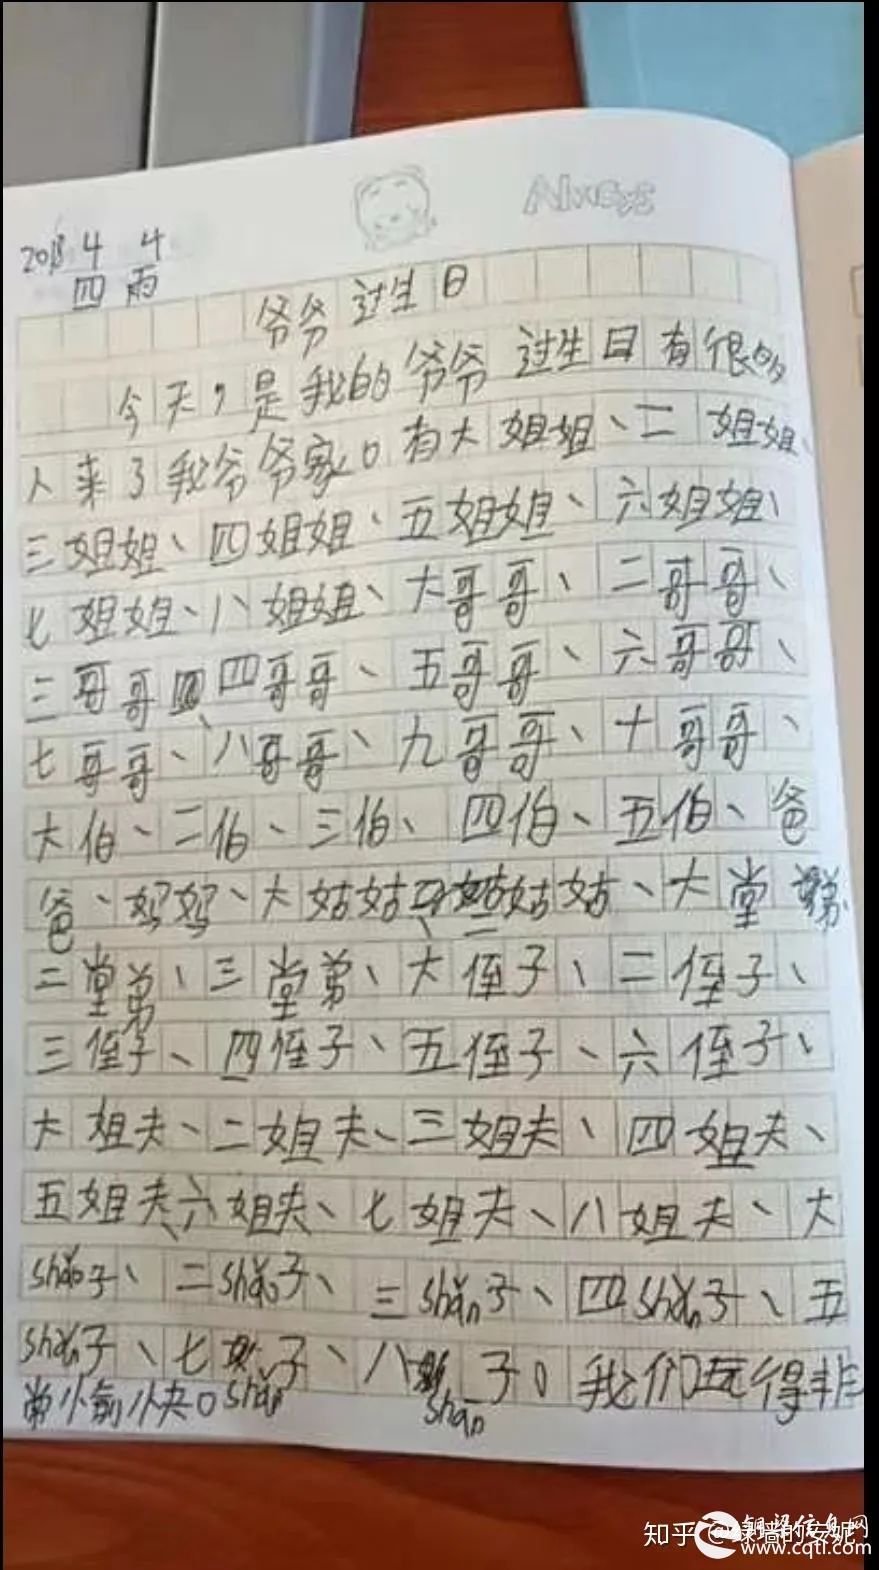 Always
2018 4 4
四 雨
爷爷过生日
今天,是我的爷爷过生日有很多
人来了我爷爷家。有大姐姐、二姐姐、
三姐姐、四姐姐、五姐姐、六姐姐、
七姐姐、八姐姐、大哥哥、二哥哥、
三哥哥、四哥哥、五哥哥、六哥哥、
七哥哥、八哥哥、九哥哥、十哥哥、
大伯、二伯、三伯、四伯、五伯、爸
爸、妈妈、大姑姑、二姑姑、大堂弟、
二堂弟、三堂弟、大侄子、二侄子、
三侄子、四侄子、五侄子、六侄子、
大姐夫、二姐夫、三姐夫、四姐夫、
五姐夫、六姐夫、七姐夫、八姐夫、大
shǎo子、二shǎo子、三shǎn子、四shǎn子、五
shǎn子、七shǎn子、八shǎn子。我们玩得非
常愉快。
知乎 @绿墙的安妮
铜梁信息网
www.cqtl.com